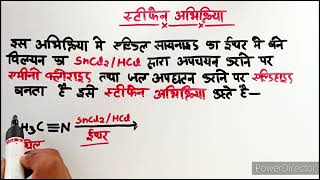 स्टीफेन अभिक्रिया
इस अभिक्रिया में एल्किल सायनाइड का ईथर में बने
विलयन का SnCl2/HCl द्वारा अपचयन करने पर
इमीनो क्लोराइड तथा जल अपघटन करने पर एल्डिहाइड
बनता है इसे स्टीफेन अभिक्रिया कहते है—
H3C≡N SnCl2/HCl
ईथर
PowerDirector